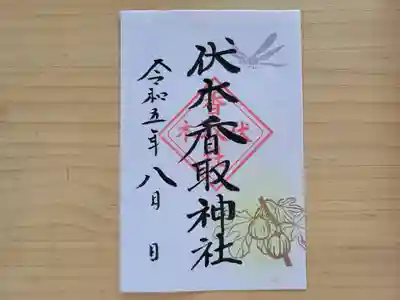 伏木香取神社
令和五年八月 日